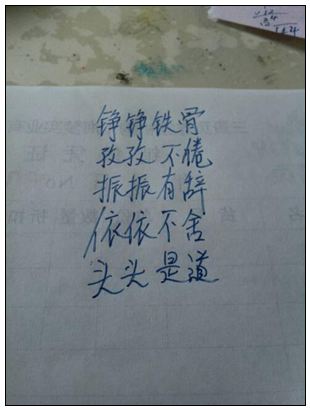 铮铮铁骨
孜孜不倦
振振有辞
依依不舍
头头是道